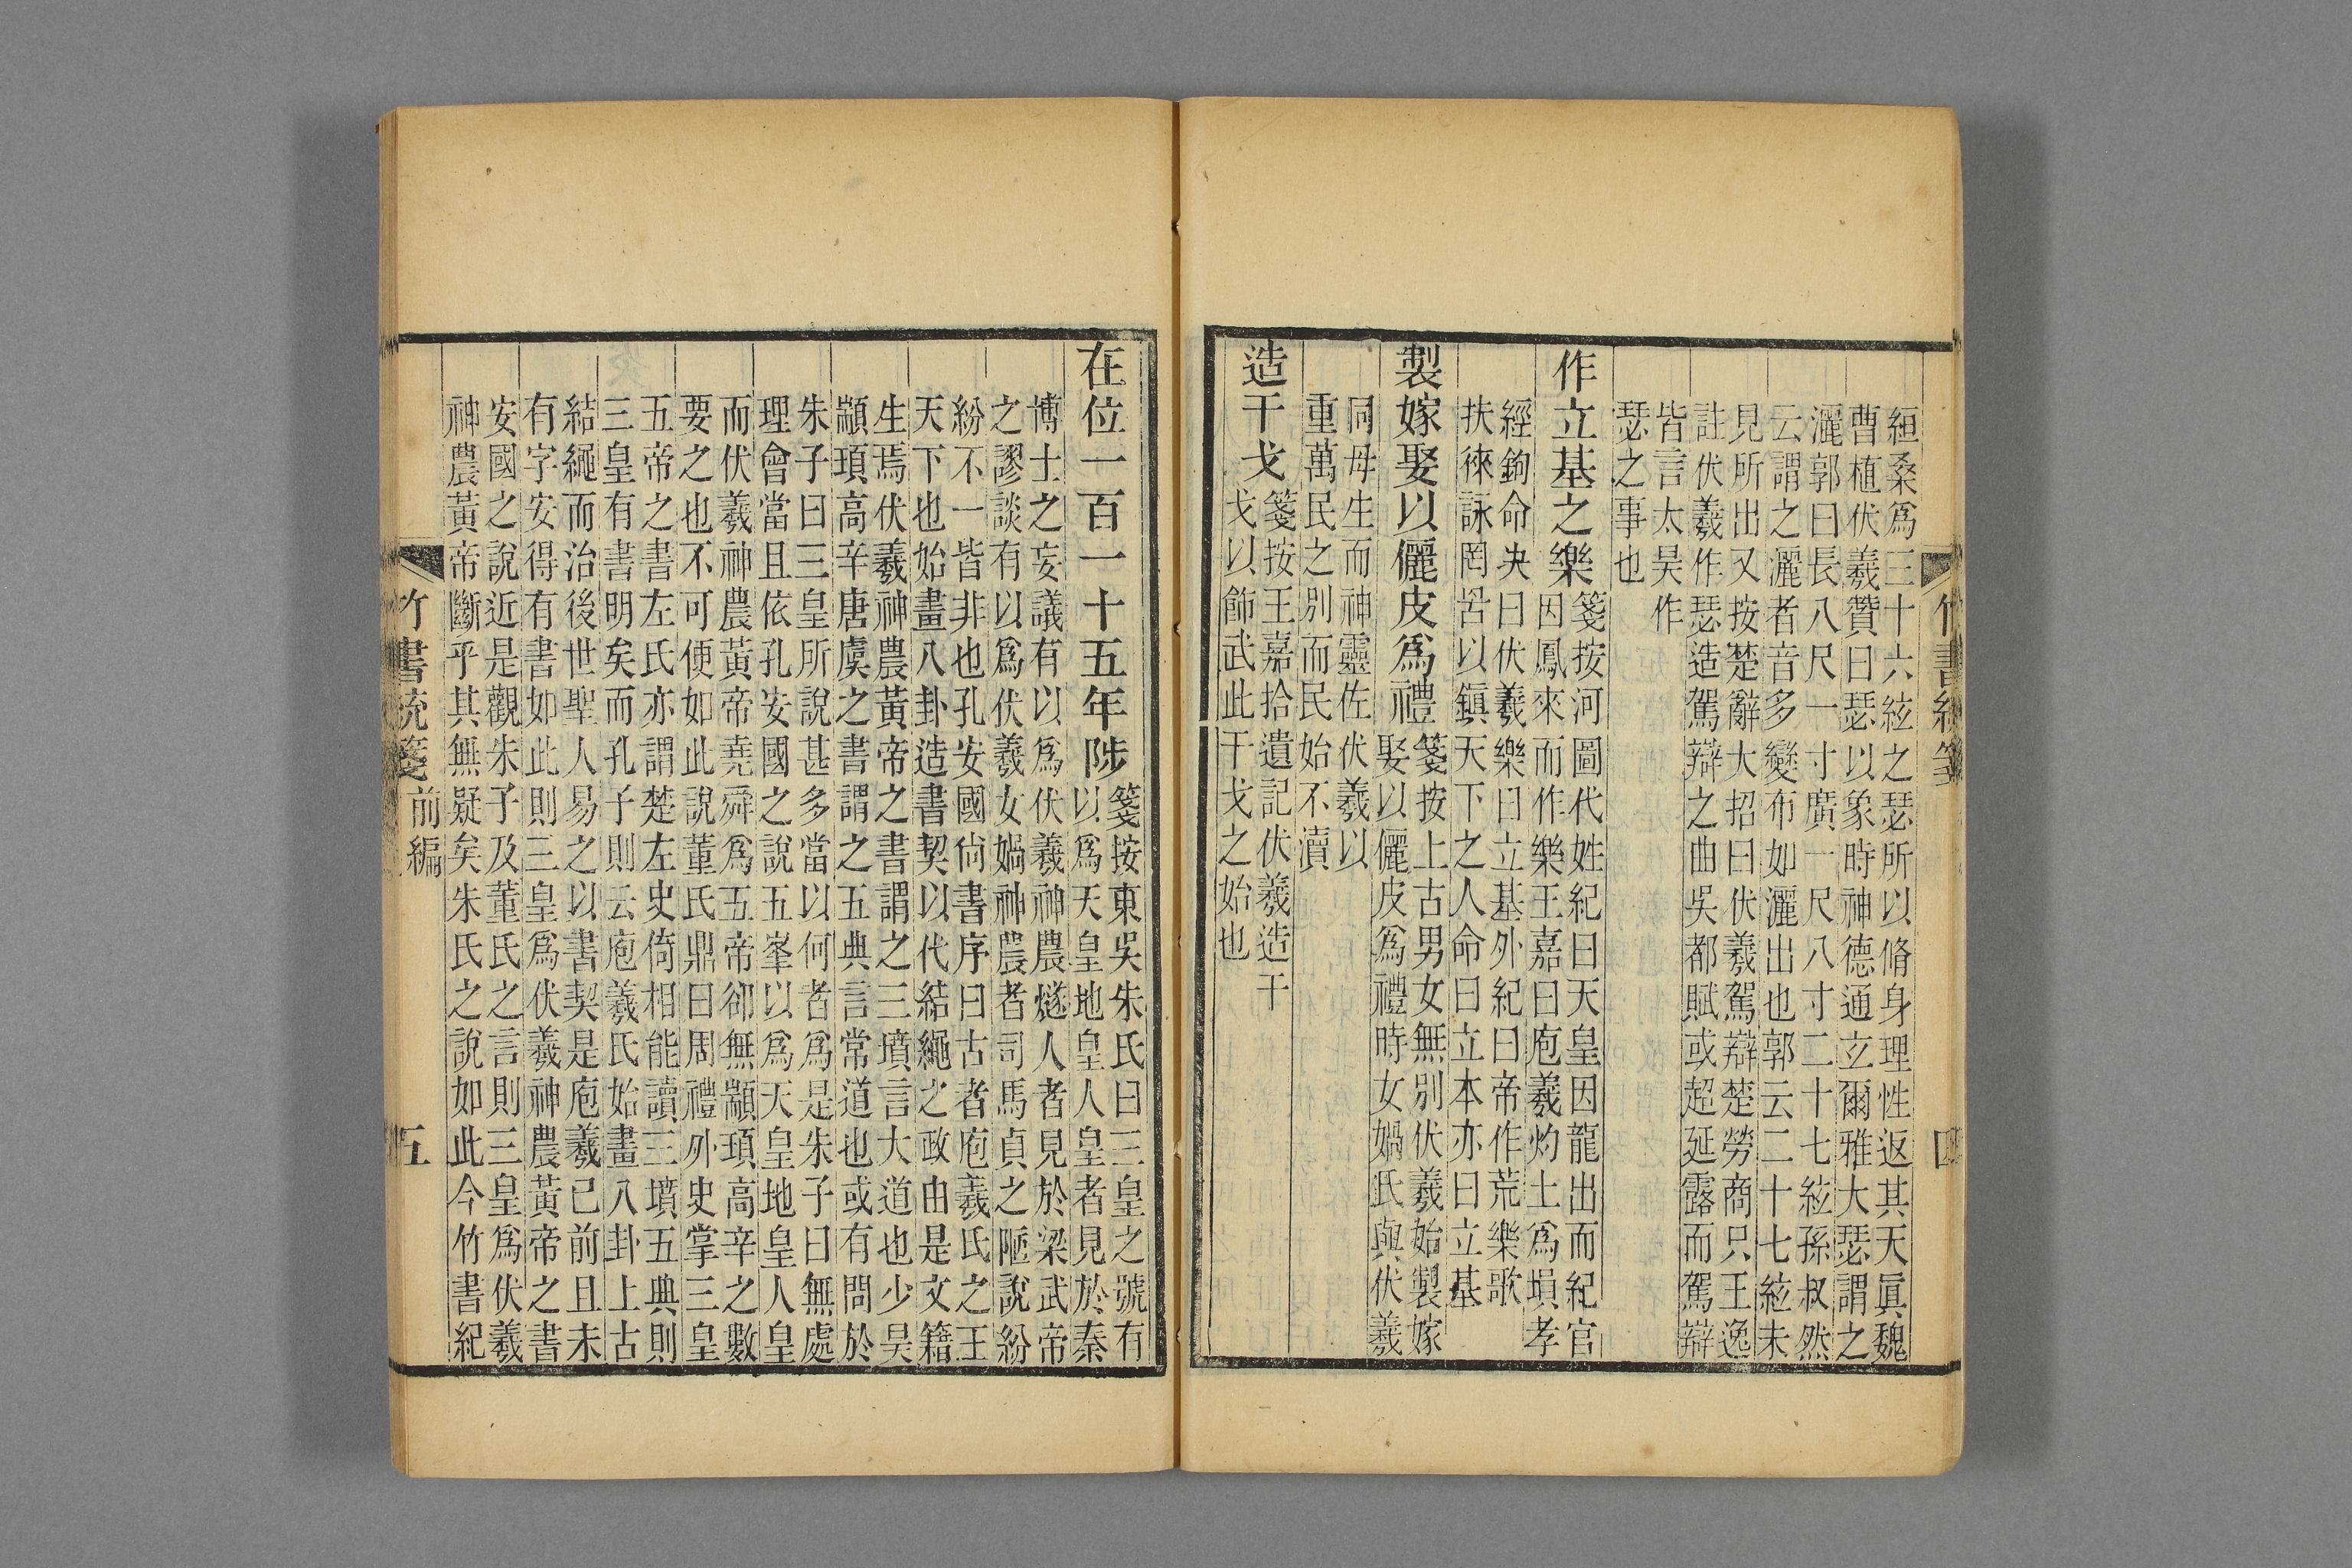 絙桑爲三十六絃之瑟所以脩身理性返其天眞魏
曹植伏羲贊曰瑟以象時神德通玄爾雅大瑟謂之
灑郭曰長八尺一寸廣一尺八寸二十七絃孫叔然
云謂之灑者音多變布如灑出也郭云二十七絃未
見所出又按楚辭大招曰伏羲駕辯楚勞商只王逸
註伏羲作瑟造駕辯之曲吳都賦或超延露而駕辯
皆言太昊作
瑟之事也
作立基之樂
箋按河圖代姓紀曰天皇因龍出而紀官
因鳳來而作樂王嘉曰庖羲灼土爲塤孝
經鉤命决曰伏羲樂曰立基外紀曰帝作荒樂歌
扶徠詠罔罟以鎮天下之人命曰立本亦曰立基
製嫁娶以儷皮爲禮
箋按上古男女無別伏羲始製嫁
娶以儷皮爲禮時女媧氏與伏羲
同母生而神靈佐伏羲以
重萬民之別而民始不瀆
造干戈
箋按王嘉拾遺記伏羲造干
戈以飾武此干戈之始也
竹書統箋
四
在位一百一十五年陟
箋按東吳朱氏曰三皇之號有
以爲天皇地皇人皇者見於秦
博士之妄議有以爲伏羲神農燧人者見於梁武帝
之謬談有以爲伏羲女媧神農者司馬貞之陋說紛
紛不一皆非也孔安國尙書序曰古者庖羲氏之王
天下也始畫八卦造書契以代結繩之政由是文籍
生焉伏羲神農黃帝之書謂之三墳言大道也少昊
顓頊高辛唐虞之書謂之五典言常道也或有問於
朱子曰三皇所說甚多當以何者爲是朱子曰無處
理會當且依孔安國之說五峯以爲天皇地皇人皇
而伏羲神農黃帝堯舜爲五帝卻無顓頊高辛之數
要之也不可便如此說董氏鼎曰周禮外史掌三皇
五帝之書左氏亦謂楚左史倚相能讀三墳五典則
三皇有書明矣而孔子則云庖羲氏始畫八卦上古
結繩而治後世聖人易之以書契是庖羲已前且未
有字安得有書如此則三皇爲伏羲神農黃帝之書
安國之說近是觀朱子及董氏之言則三皇爲伏羲
神農黃帝斷乎其無疑矣朱氏之說如此今竹書紀
竹書統箋
前編
五